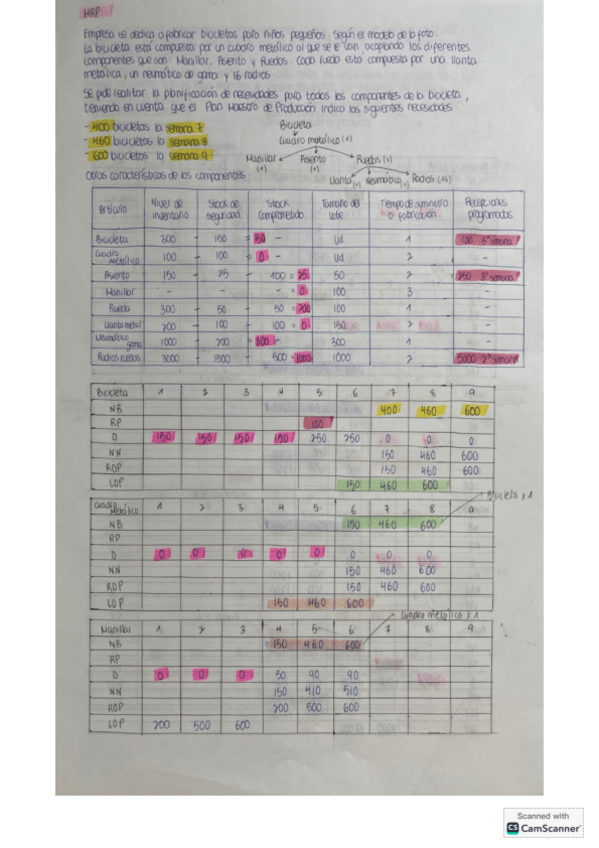 MRP:
Empresa se dedica a fabricar bicicletas para niños pequeños. Según el modelo de la foto
La bicicleta está compuesta por un cuadro metálico al que se le van acoplando los diferentes
componentes que son: Manillar, Asiento y Ruedas. Cada rueda está compuesta por una llanta
metálica, un neumático de goma y 16 radios.
Se pide realitar la planificación de necesidades para todos los componentes de la bicicleta,
teniendo en cuenta que el Plan Maestro de Producción indica las siguientes necesidades:
- 400 bicicletas la semana 7
- 460 bicicletas la semana 8
- 600 bicicletas la semana 9
Bicicleta
Cuadro metálico (1)
Manillar (1) Asiento (1) Ruedas
Llanta (1) Neumático (1) Radios (16)
Otras características de los componentes:
Artículo | Nivel de inventario | Stock de seguridad | Stock Comprometido | Tamaño del lote | Tiempo de suministro o fabricación | Recepciones programadas
Bicicleta 300 - 150 = - Ud 1 100 5ª semana
Cuadro metálico 100 - 100 = 0 - Ud 2 -
Asiento 150 - 25 - 100 = 25 50 2 250 3ª semana
Manillar - - - = 0 100 3 -
Rueda 300 - 50 - 50 = 200 100 1 -
Llanta metal 200 - 100 - 100 = 0 150 2 -
Neumático goma 1000 - 200 = 800 - 300 1 -
Radios ruedas 3000 - 1500 - 500 = 1000 1000 2 5000 2ª semana
Bicicleta 1 2 3 4 5 6 7 8 9
NB 400 460 600
RP 100
D 150 150 150 150 250 250 0 0 0
NN 150 460 600
ROP 150 460 600
LOP 150 460 600
Bicicleta x 1
Cuadro Metálico 1 2 3 4 5 6 7 8 9
NB 150 460 600
RP
D 0 0 0 0 0 0 0 0
NN 150 460 600
ROP 150 460 600
LOP 150 460 600
Cuadro metálico x 1
Manillar 1 2 3 4 5 6 7 8 9
NB 150 460 600
RP
D 0 0 0 50 90 90
NN 150 410 510
ROP 200 500 600
LOP 200 500 600
Scanned with
CS CamScanner